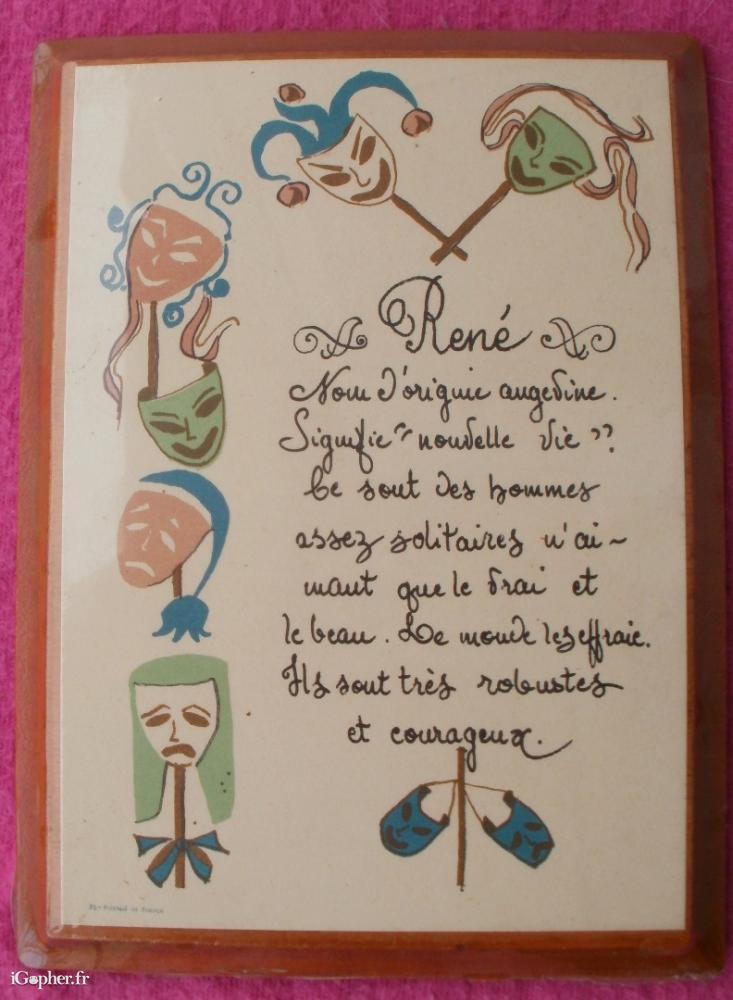 René
Nom d'origine angevine.
Signifie "nouvelle vie".
Ce sont des hommes
assez solitaires n'ai-
mant que le vrai et
le beau. Le monde les effraie.
Ils sont très robustes
et courageux.
Printed in France
iGopher.fr